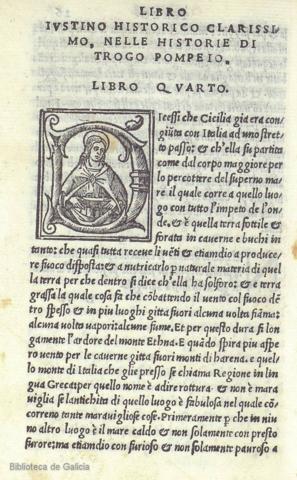 LIBRO
IVSTINO HISTORICO CLARISSI
MO, NELLE HISTORIE DI
TROGO POMPEIO.
LIBRO QVARTO.
Icessi che Cicilia gia era con
giūta con Italia ad uno stret
to passo: & ch'ella fu partita
come dal corpo maggiore per
lo percottere del superno ma
re il quale corre a quello luo
go con tutto l'impeto de l'on
de, & è quella terra sottile &
forata in cauerne e buchi in
tanto: che quasi tutta receue li uēti & etiamdio a produce
re fuoco disposta: & a nutricarlo p naturale materia di quel
la terra per che dentro si dice ch'ella ha solforo: & e terra
grassa la quale cosa fa che cōbattendo il uento col fuoco dē
tro spesso & in piu luoghi gitta fuori alcuna uolta fiāma:
alcuna uolta uapori: alcune fume. Et per questo dura si lon
gamente l'ardore del monte Ethna. E quando spira piu aspe
ro uento per le cauerne gitta fuori monti di harena. e quel
lo monte di Italia che glie presso se chiama Regione in lin
gua Greca: per quello nome è adire rottura. & non è mara
uiglia se lantichita di quello luogo è fabulosa nel quale cō
correno tante marauigliose cose. Primeramente p che in niu
no altro luogo è il mare caldo & non solamente con presto
furore: ma etiamdio con furioso & non solamente pauroso a
Biblioteca de Galicia